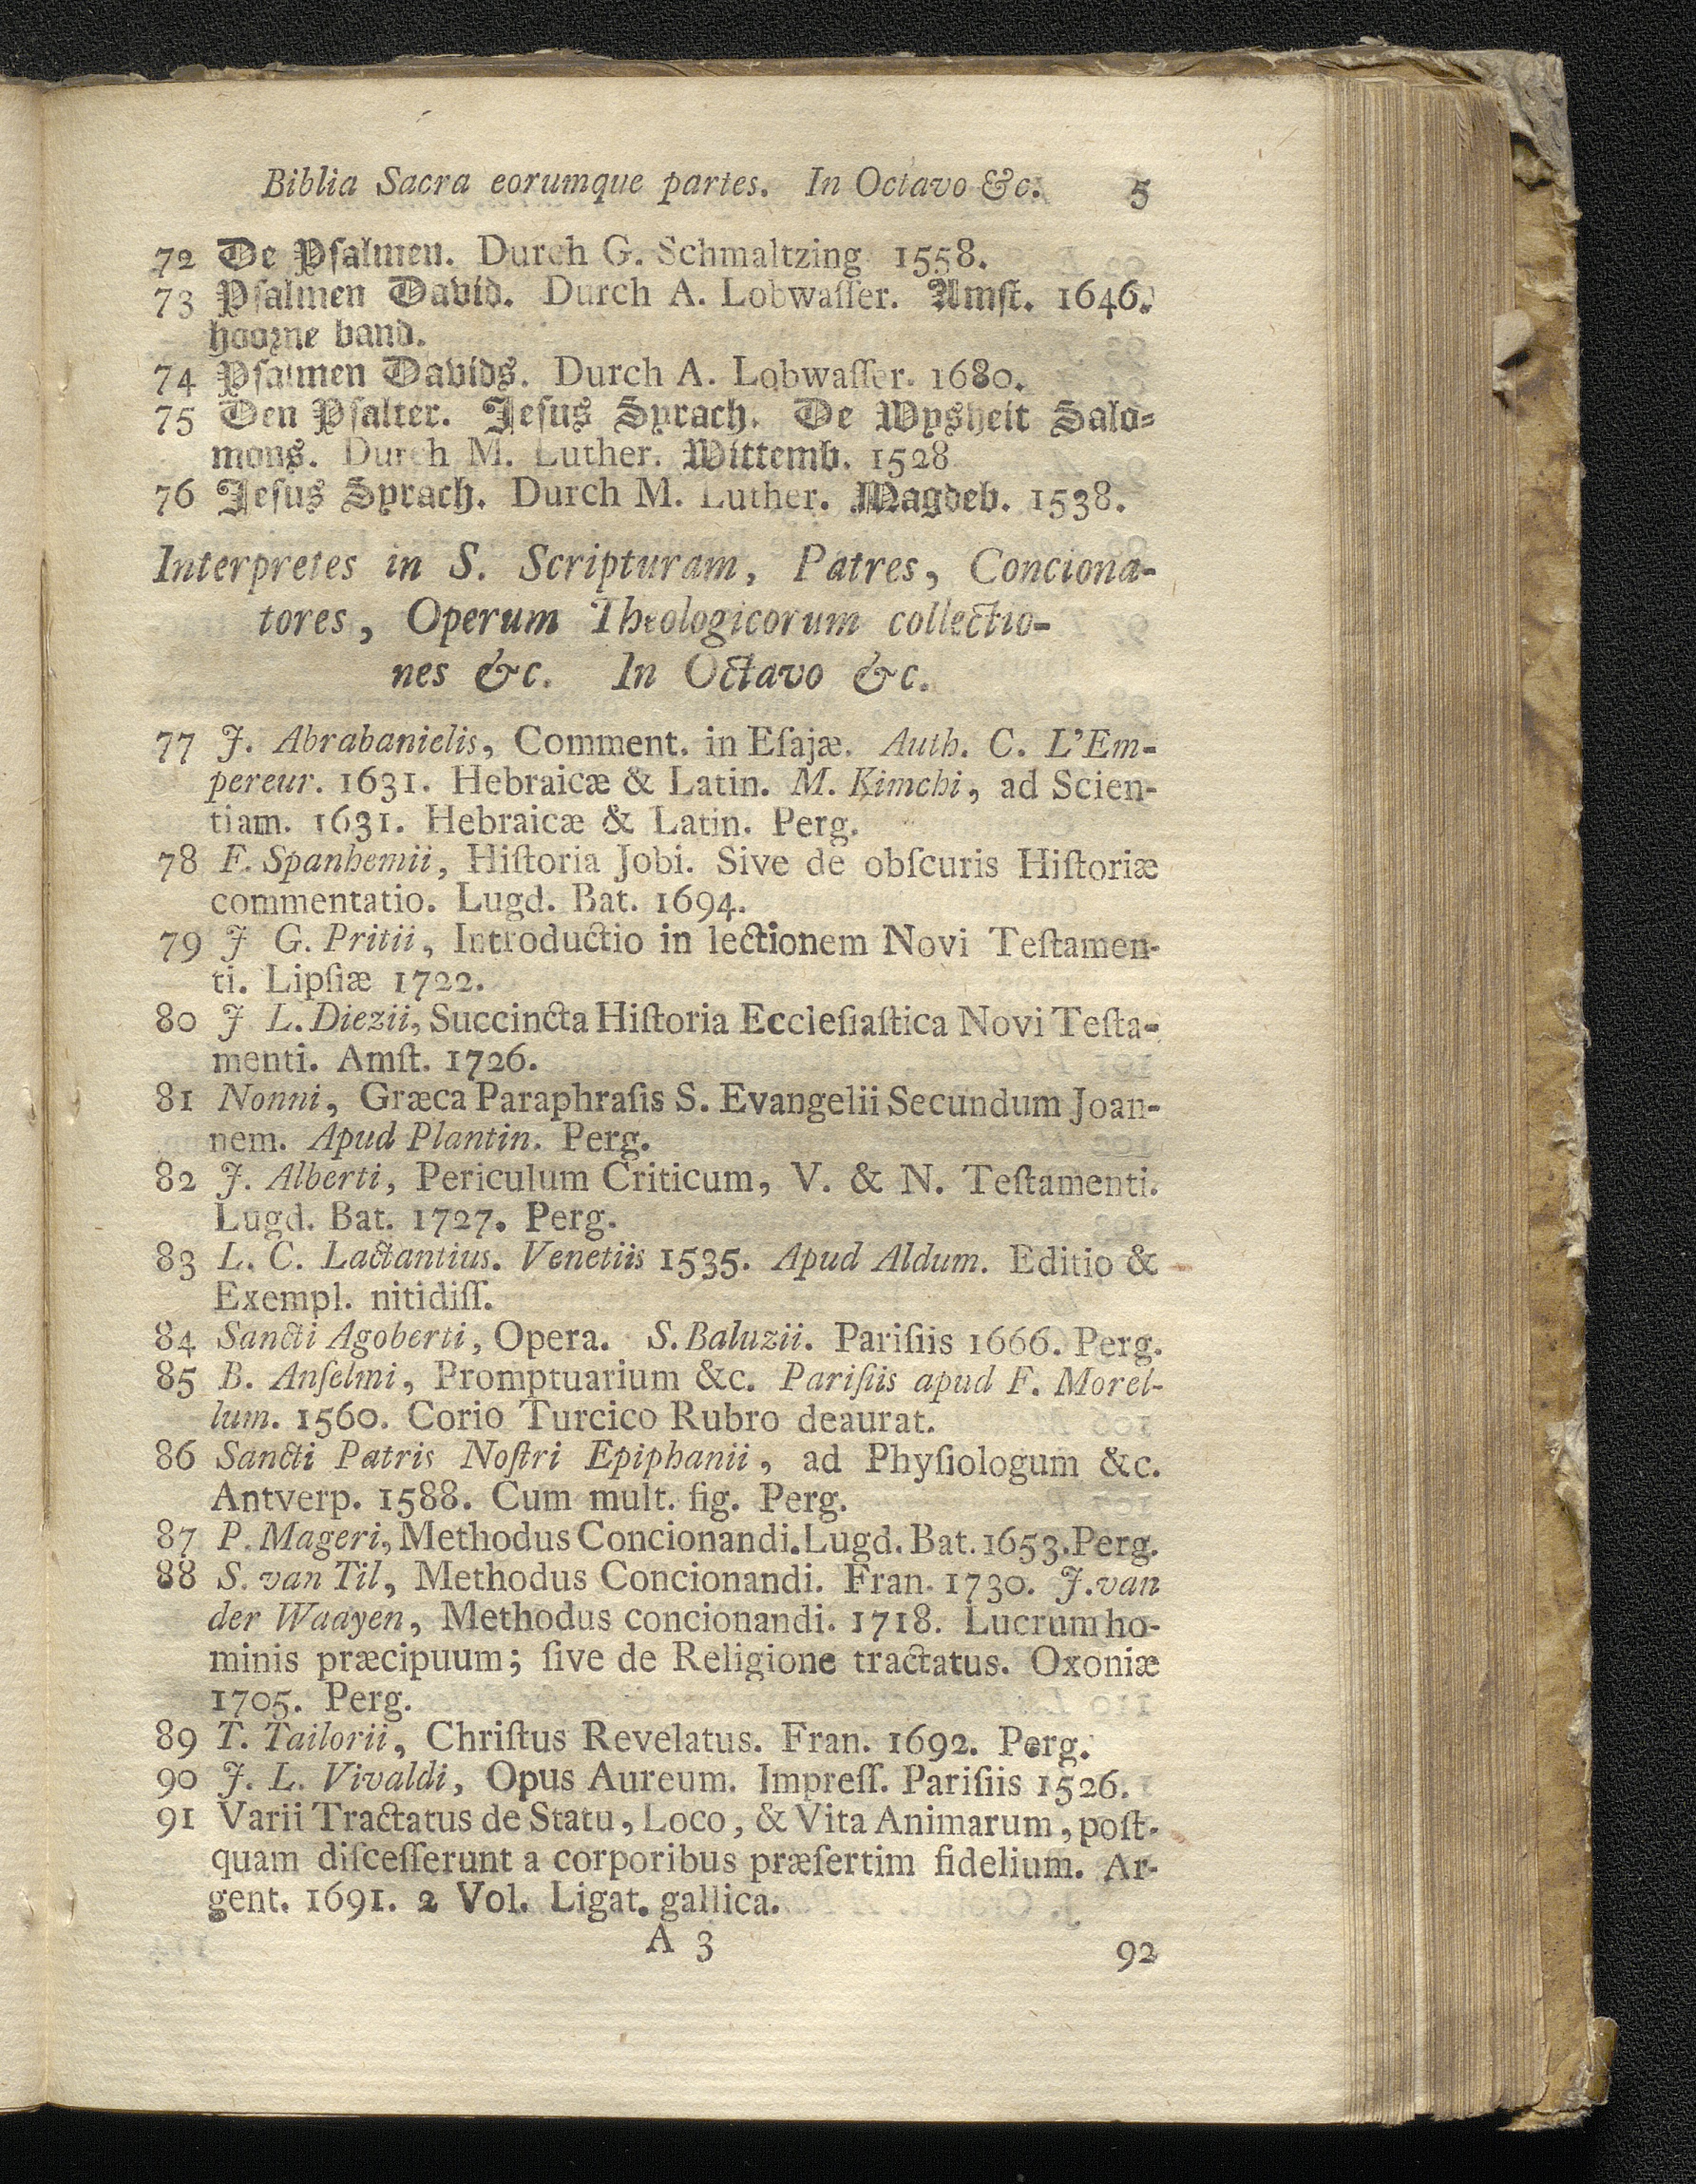 Biblia Sacra eorumque partes. In Octavo &c. 5
72 De Pſalmen. Durch G. Schmaltzing 1558.
73 Pſalmen David. Durch A. Lobwaſſer. Amſt. 1646.
hooꝛne band.
74 Pſalmen Davids. Durch A. Lobwaſſer. 1680.
75 Den Pſalter. Jeſus Syrach. De Wysheit Salo-
mons. Durch M. Luther. Wittemb. 1528
76 Jeſus Syrach. Durch M. Luther. Magdeb. 1538.
Interpretes in S. Scripturam, Patres, Conciona-
tores, Operum Theologicorum collectio-
nes &c. In Octavo &c.
77 J. Abrabanielis, Comment. in Eſajæ. Auth. C. L'Em-
pereur. 1631. Hebraicæ & Latin. M. Kimchi, ad Scien-
tiam. 1631. Hebraicæ & Latin. Perg.
78 F. Spanhemii, Hiſtoria Jobi. Sive de obſcuris Hiſtoriæ
commentatio. Lugd. Bat. 1694.
79 J G. Pritii, Introductio in lectionem Novi Teſtamen-
ti. Lipſiæ 1722.
80 J L. Diezii, Succincta Hiſtoria Eccleſiaſtica Novi Teſta-
menti. Amſt. 1726.
81 Nonni, Græca Paraphraſis S. Evangelii Secundum Joan-
nem. Apud Plantin. Perg.
82 J. Alberti, Periculum Criticum, V. & N. Teſtamenti.
Lugd. Bat. 1727. Perg.
83 L. C. Lactantius. Venetiis 1535. Apud Aldum. Editio &
Exempl. nitidiſſ.
84 Sancti Agoberti, Opera. S. Baluzii. Pariſiis 1666. Perg.
85 B. Anſelmi, Promptuarium &c. Pariſiis apud F. Morel-
lum. 1560. Corio Turcico Rubro deaurat.
86 Sancti Patris Noſtri Epiphanii, ad Phyſiologum &c.
Antverp. 1588. Cum mult. fig. Perg.
87 P. Mageri, Methodus Concionandi. Lugd. Bat. 1653. Perg.
88 S. van Til, Methodus Concionandi. Fran. 1730. J. van
der Waayen, Methodus concionandi. 1718. Lucrum ho-
minis præcipuum; ſive de Religione tractatus. Oxoniæ
1705. Perg.
89 T. Tailorii, Chriſtus Revelatus. Fran. 1692. Perg.
90 J. L. Vivaldi, Opus Aureum. Impreſſ. Pariſiis 1526.
91 Varii Tractatus de Statu, Loco, & Vita Animarum, poſt-
quam diſceſſerunt a corporibus præſertim fidelium. Ar-
gent. 1691. 2 Vol. Ligat. gallica.
A 3 92